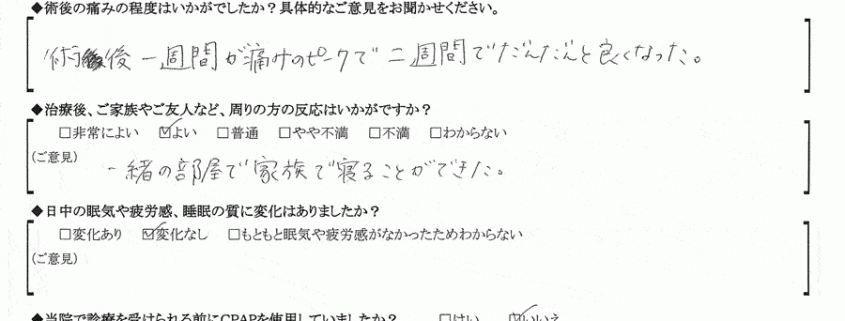 ◆術後の痛みの程度はいかがでしたか?具体的なご意見をお聞かせください。
術後一週間が痛みのピークで二週間でだんだんと良くなった。
◆治療後、ご家族やご友人など、周りの方の反応はいかがですか?
□非常によい ☑よい □普通 □やや不満 □不満 □わからない
(ご意見)
一緒の部屋で家族で寝ることができた。
◆日中の眠気や疲労感、睡眠の質に変化はありましたか?
□変化あり ☑変化なし □もともと眠気や疲労感がなかったためわからない
(ご意見)
◆当院で診療を受けられる前にCPAPを使用していましたか? □はい ☑いいえ